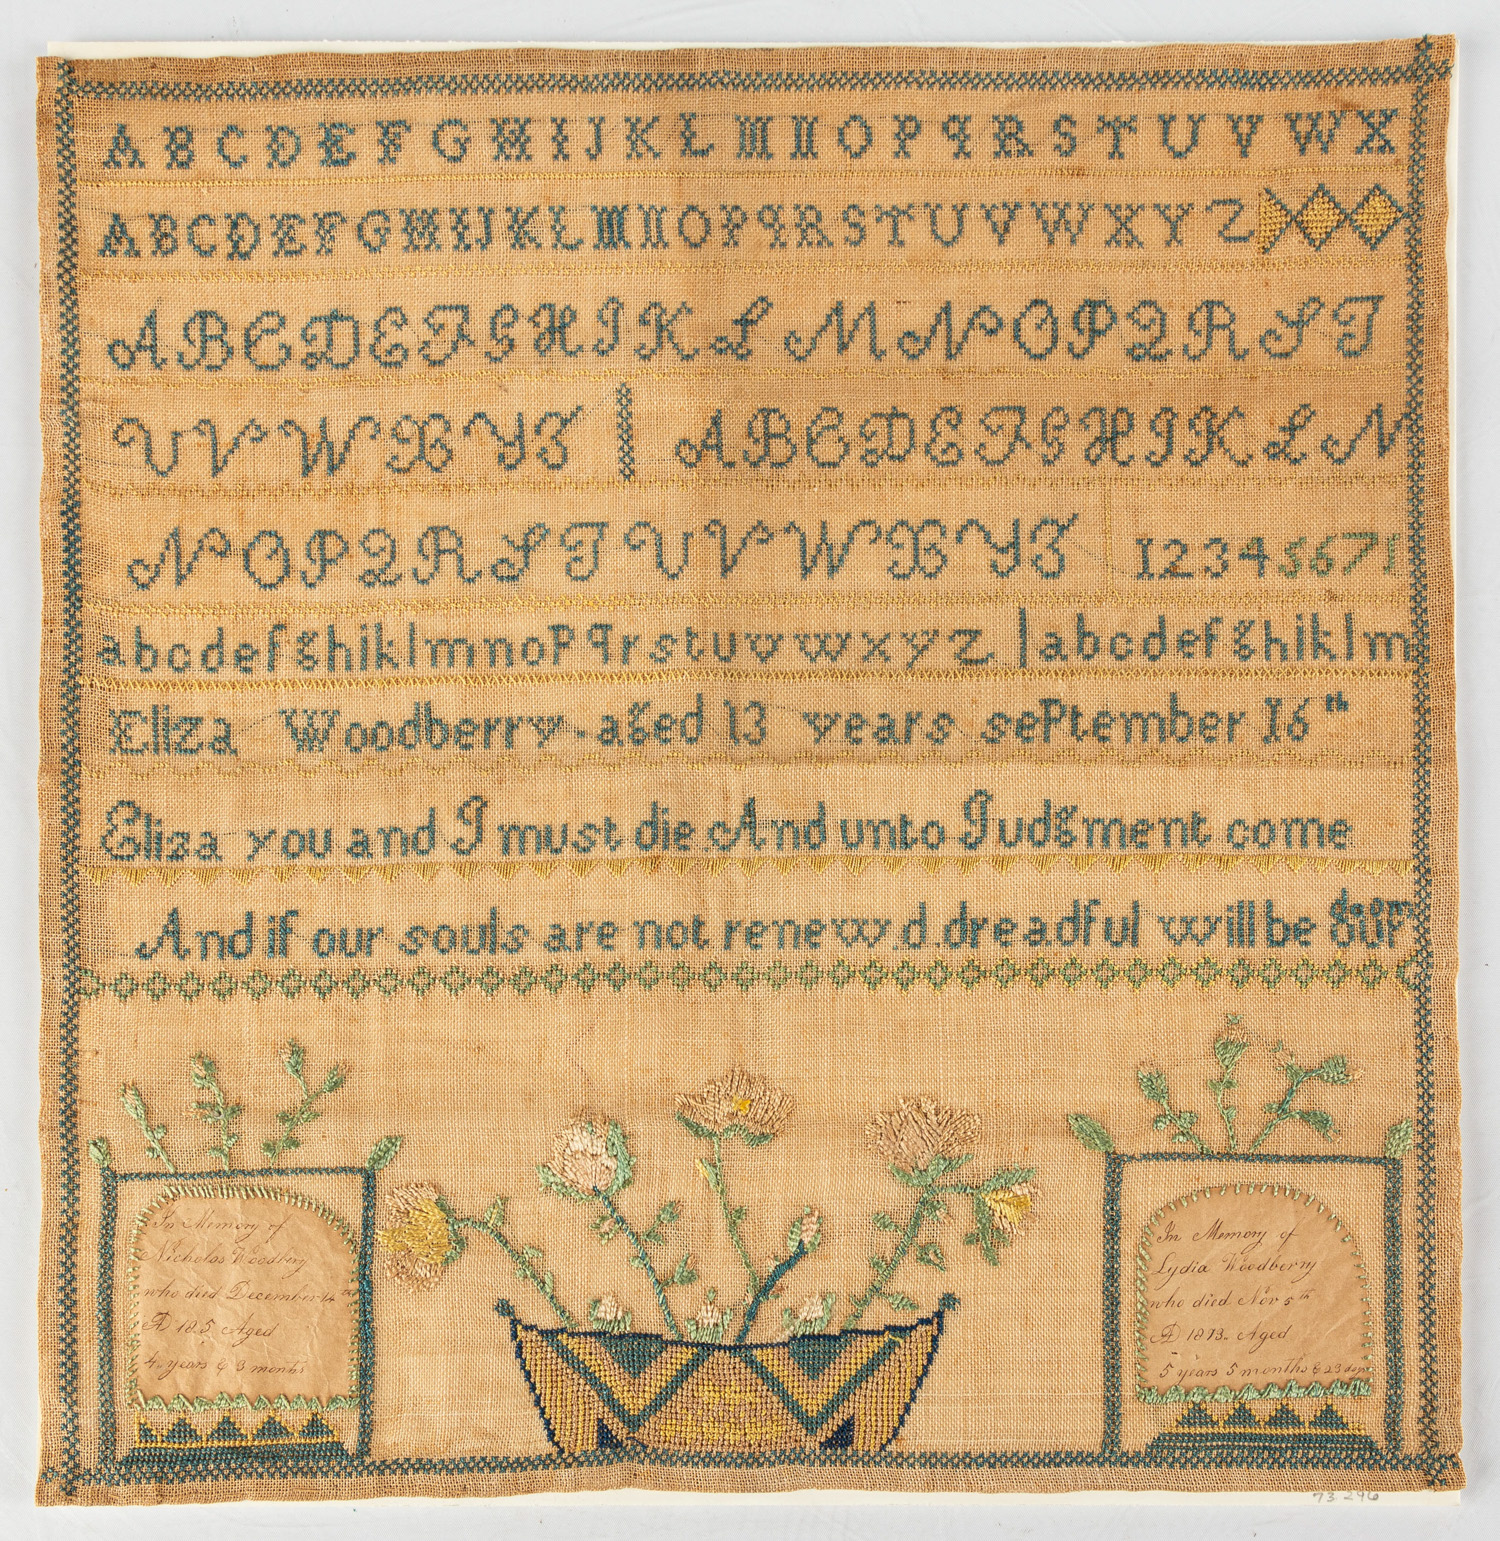 A B C D E F G H I J K L M N O P q R S T U V W X
A B C D E F G H I J K L M N O P q R S T U V W X Y Z
A B C D E F G H I K L M N O P Q R S T
U V W X Y Z | A B C D E F G H I K L M
N O P Q R S T U V W X Y Z 1 2 3 4 5 6 7 8
a b c d e f g h i k l m n o p q r s t u v w x y z | a b c d e f g h i k l m
Eliza Woodberry aged 13 years september 16th
Eliza you and I must die And unto Judgment come
And if our souls are not renew,d dreadful will be our
doom
In Memory of
Nicholas Woodbery
who died December 14th
AD 18 5 Aged
4 years & 3 months
In Memory of
Lydia Woodberry
who died Nov 5th
AD 1813 Aged
5 years 5 months & 23 days
73.296